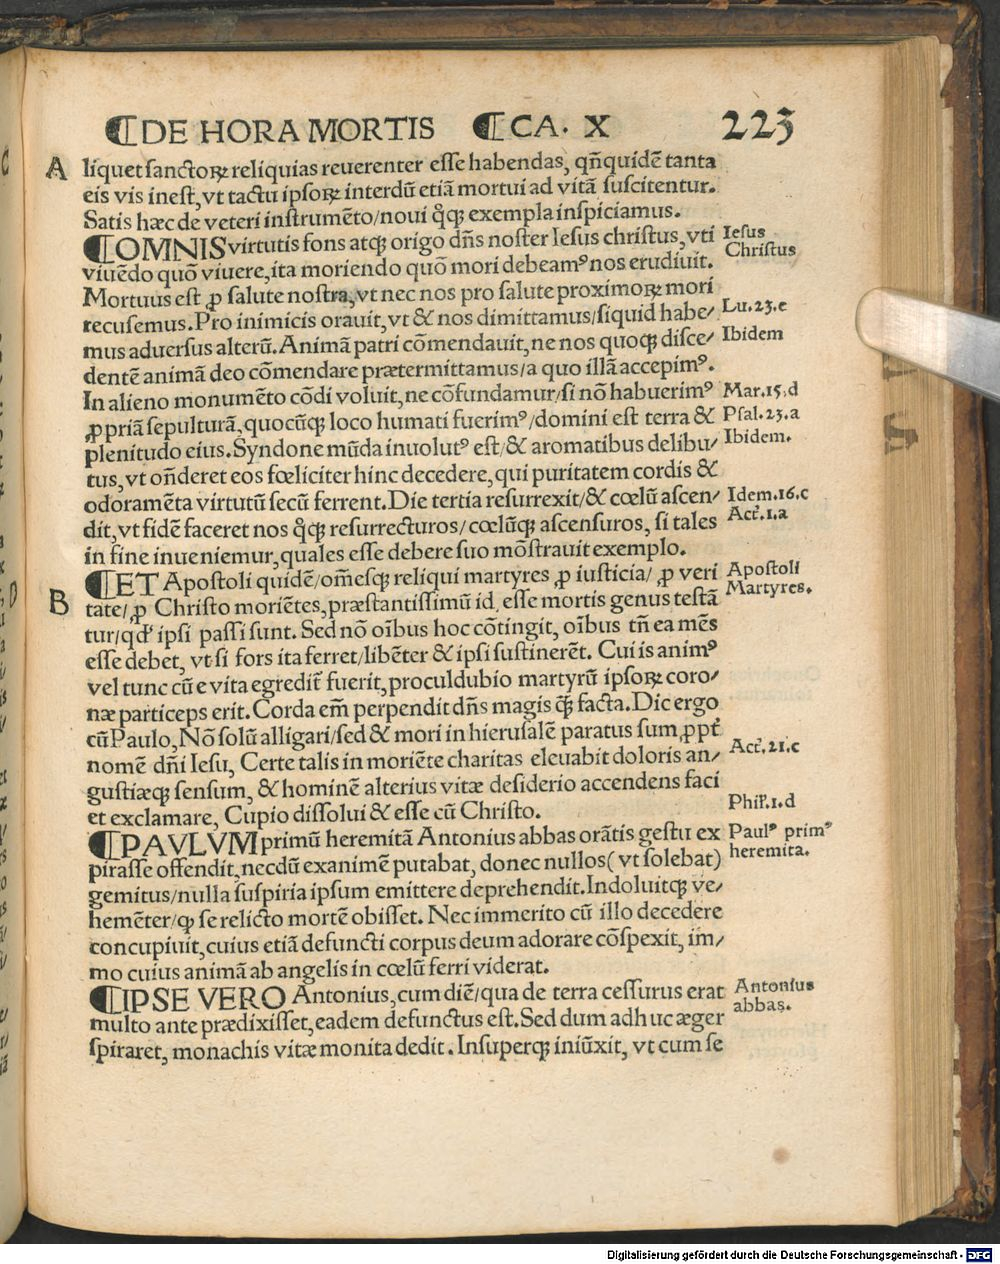 ¶DE HORA MORTIS ¶CA. X 223
A liquet sanctoꝝ reliquias reuerenter esse habendas, qñquidē tanta
eis vis inest, vt tactu ipsoꝝ interdū etiā mortui ad vitā suscitentur.
Satis hæc de veteri instrumēto/noui q̊qꝫ exempla inspiciamus.
¶OMNIS virtutis fons atqꝫ origo dñs noster Iesus christus, vti Iesus
viuēdo quō viuere, ita moriendo quō mori debeamꝰ nos erudiuit. Christus
Mortuus est ꝓ salute nostra, vt nec nos pro salute proximoꝝ mori
recusemus. Pro inimicis orauit, vt & nos dimittamus/siquid habe/ Lu.23.e
mus aduersus alterū. Animā patri cōmendauit, ne nos quoqꝫ disce/ Ibidem
dentē animā deo cōmendare prætermittamus/a quo illā accepimꝰ.
In alieno monumēto cōdi voluit, ne cōfundamur/si nō habuerimꝰ Mar.15.d
ꝓpriā sepulturā, quocūqꝫ loco humati fuerimꝰ/domini est terra & Psal.23.a
plenitudo eius. Syndone mūda inuolutꝰ est/& aromatibus delibu/ Ibidem.
tus, vt oñderet eos fœliciter hinc decedere, qui puritatem cordis &
odoramēta virtutū secū ferrent. Die tertia resurrexit/& cœlū ascen/ Idem.16.c
dit, vt fidē faceret nos q̊qꝫ resurrecturos/cœlūqꝫ ascensuros, si tales Act̃.1.a
in fine inueniemur, quales esse debere suo mōstrauit exemplo.
¶ET Apostoli quidē/om̃esqꝫ reliqui martyres ꝓ iusticia/ ꝓ veri Apostoli
B tate/ ꝓ Christo moriētes, præstantissimū id esse mortis genus testā Martyres.
tur/qđ ipsi passi sunt. Sed nō oībus hoc cōtingit, oībus tñ ea mēs
esse debet, vt si fors ita ferret/libēter & ipsi sustinerēt. Cui is animꝰ
vel tunc cū e vita egredit̃ fuerit, proculdubio martyrū ipsoꝝ coro/
næ particeps erit. Corda em̃ perpendit dñs magis q̃ꝫ facta. Dic ergo
cū Paulo, Nō solū alligari/sed & mori in hierusalē paratus sum, ꝓpt̃
nomē dñi Iesu, Certe talis in moriēte charitas eleuabit doloris an/ Act̃.21.c
gustiæqꝫ sensum, & hominē alterius vitæ desiderio accendens faci
et exclamare, Cupio dissolui & esse cū Christo. Phil̃.1.d
¶PAVLVM primū heremitā Antonius abbas orātis gestu ex Paulꝰ primꝰ
pirasse offendit, necdū exanimē putabat, donec nullos( vt solebat) heremita.
gemitus/nulla suspiria ipsum emittere deprehendit. Indoluitqꝫ ve/
hemēter/ꝙ se relicto mortē obisset. Nec immerito cū illo decedere
concupiuit, cuius etiā defuncti corpus deum adorare cōspexit, im/
mo cuius animā ab angelis in cœlū ferri viderat.
¶IPSE VERO Antonius, cum diē/qua de terra cessurus erat Antonius
multo ante prædixisset, eadem defunctus est. Sed dum adhuc æger abbas.
spiraret, monachis vitæ monita dedit. Insuperqꝫ iniūxit, vt cum se
Digitalisierung gefördert durch die Deutsche Forschungsgemeinschaft - DFG